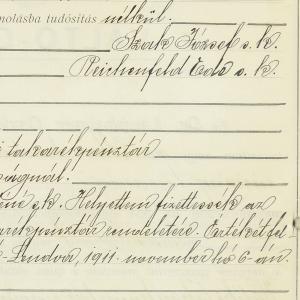 molásba tudósítás nélkül.
Szak József s. k.
Reichenfeld Ede s. k.
takarékpénztár
ságnál.
né s.k. Helyettem fizettessék az
rékpénztár rendeletére. Értékét fel
-Lendva, 1911. november hó 6-án.